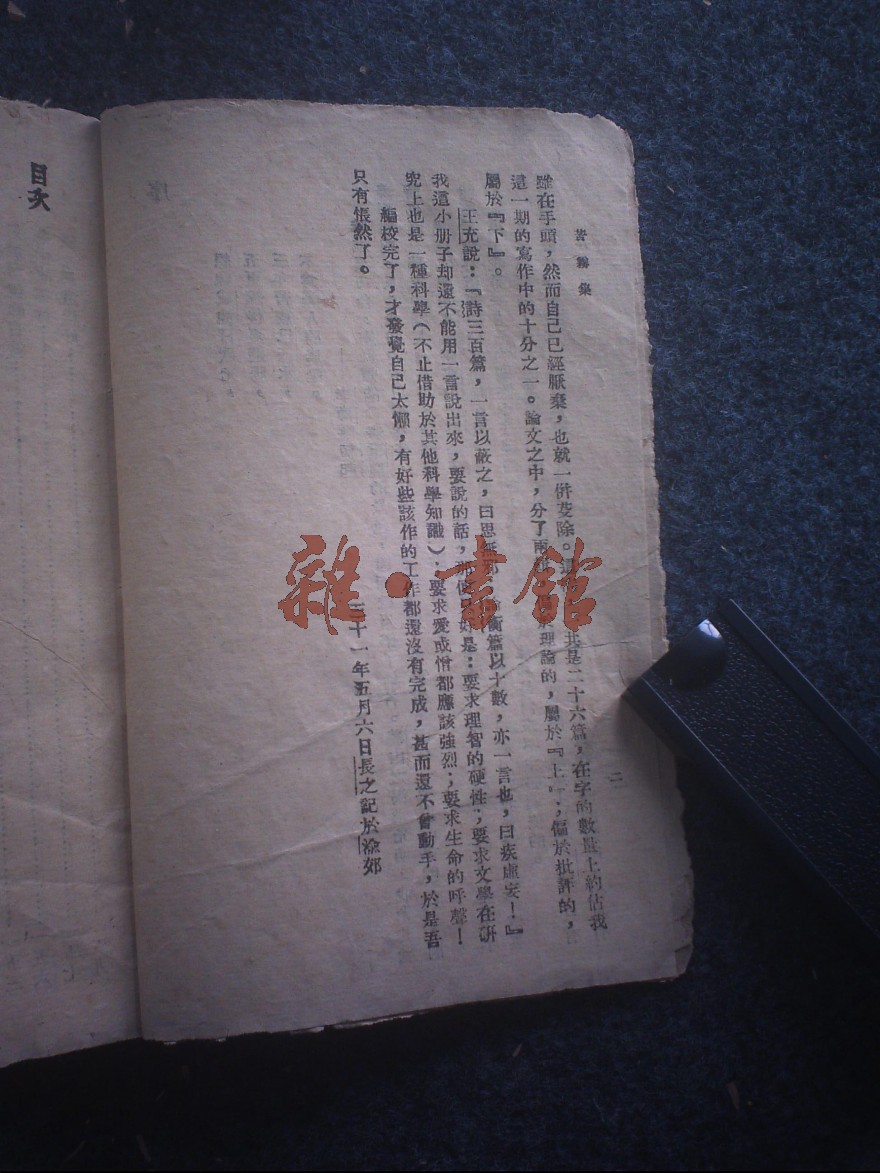 苦霧集
二
雖在手頭，然而自己已經厭棄，也就一併芟除。共是二十六篇，在字的數量上約佔我
這一期的寫作中的十分之一。論文之中，分了兩理論的，屬於『上』；偏於批評的，
屬於『下』。
王充說：『詩三百篇，一言以蔽之，曰思無衡篇以十數，亦一言也，曰疾虛妄！』
我這小册子却還不能用一言說出來，要說的話，好是：要求理智的硬性；要求文學在研
究上也是一種科學（不止借助於其他科學知識），要求愛或憎都應該強烈；要求生命的呼聲！
編校完了，才發覺自己太懶，有好些該作的工作都還沒有完成，甚而還不曾動手，於是吾
只有悵然了。
十一年五月六日長之記於渝郊
目次
序
雜·書館